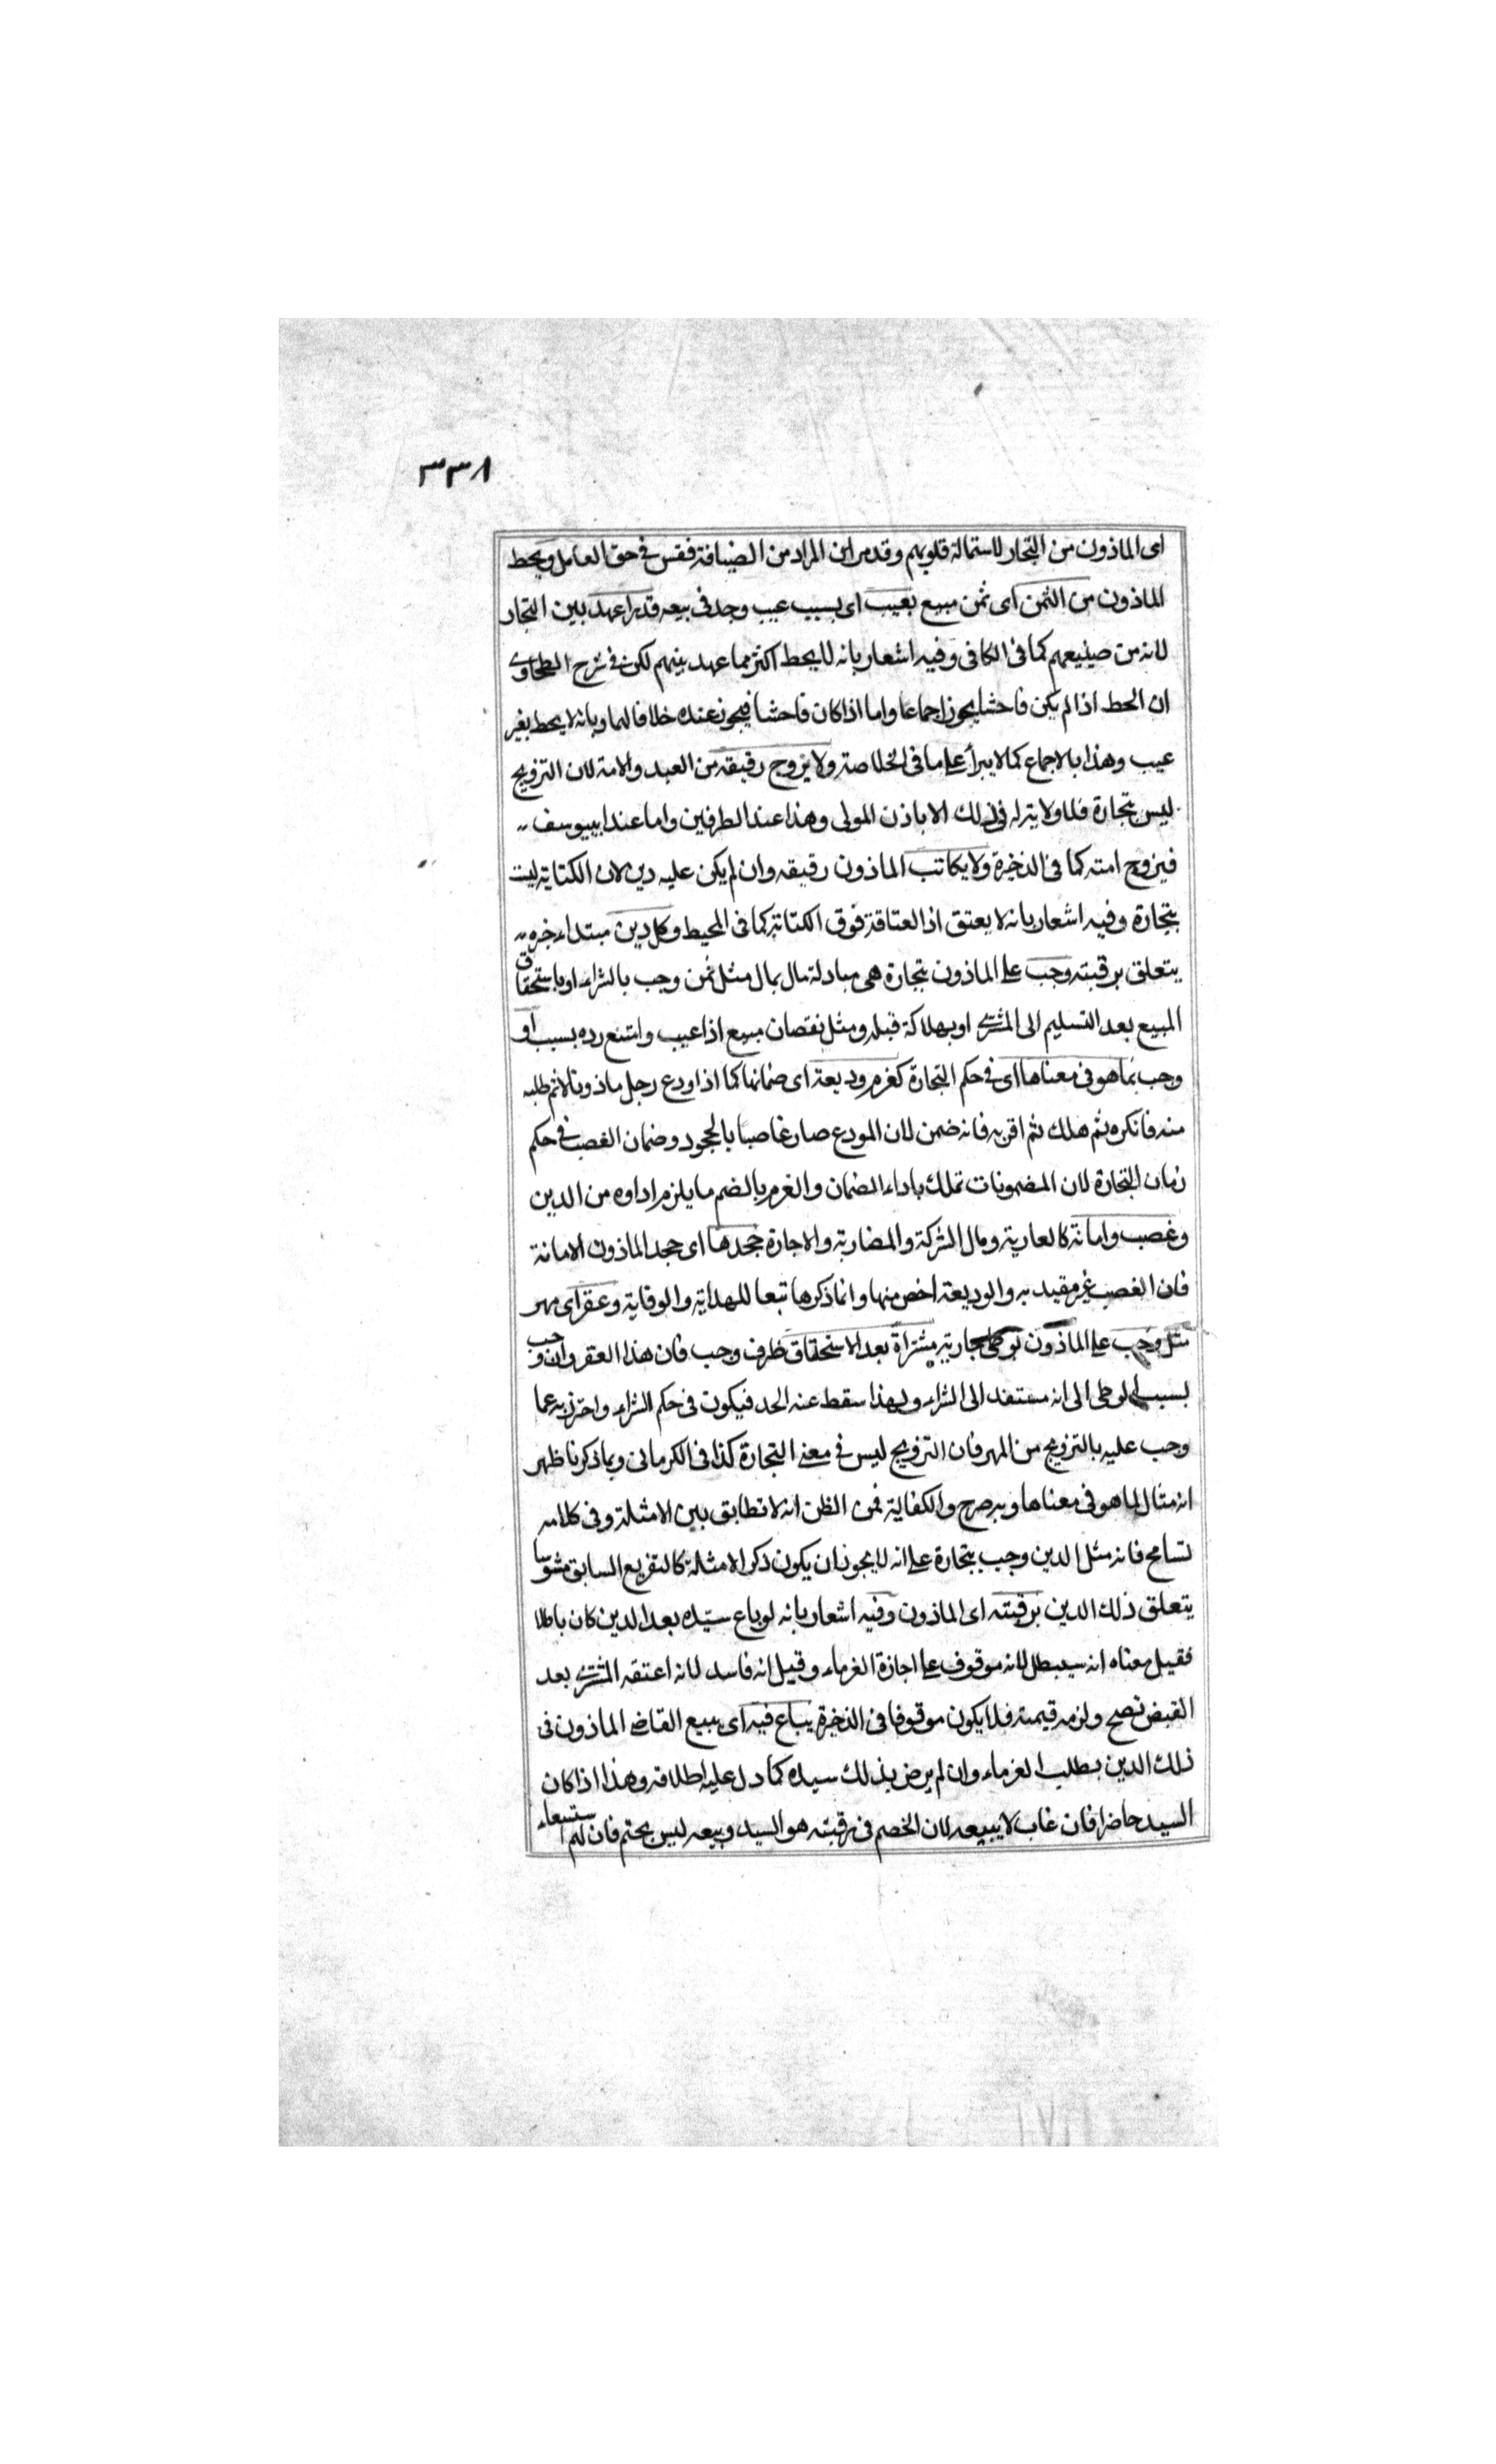 ٣٣٨
اى الماذون من التجار لاستمالة قلوبهم وقد مر ان المراد من الضيافة فقس فى حق العامل ويحط
الماذون من الثمن اى ثمن مبيع بعيب اى بسبب عيب وجد فى بيعه قدرا عهد بين التجار
لانه من صنيعهم كما فى الكافى وفيه اشعار بانه لا يحط اكثر مما عهد بينهم لكن فى شرح الطحاوى
ان الحط اذا لم يكن فاحشا يجوز اجماعا واما اذا كان فاحشا فيجوز عنده خلافا لهما وبانه لا يحط بغير
عيب وهذا بالاجماع كما لا يبرأ على ما فى الخلاصة ولا يزوج رقيقه من العبد والامة لان التزويج
ليس بتجارة فلا ولاية له فى ذلك الا باذن المولى وهذا عند الطرفين واما عند ابى يوسف
فيزوج امته كما فى الذخيرة ولا يكاتب الماذون رقيقه وان لم يكن عليه دين لان الكتابة ليست
بتجارة وفيه اشعار بانه لا يعتق اذ العتاقة فوق الكتابة كما فى المحيط وكل دين مبتداء خبره
يتعلق برقبته وجب على الماذون بتجارة هى مبادلة مال بمال مثل ثمن وجب بالشراء او باستحقاق
المبيع بعد التسليم الى المشترى او بهلاكه قبله ومثل نقصان مبيع اذا عيب وامتنع رده بسبب او
وجب بما هو فى معناها اى فى حكم التجارة كغرم وديعة اى ضمانها كما اذا اودع رجل ماذونا لا ثم طلبه
منه فانكره ثم هلك ثم اقر به فانه ضمن لان المودع صار غاصبا بالجحود وضمان الغصب فى حكم
زمان التجارة لان المضمونات تملك باداء الضمان والغرم بالضم ما يلزم اداوه من الدين
وغصب وامانة كالعارية ومال الشركة والمضاربة والاجارة جحدها اى جحد الماذون الامانة
فان الغصب غير مقيد به والوديعة اخص منها وانما ذكرها تبعا للهداية والوقاية وعقر اى مهر
مثل وجب على الماذون بوطى جارية مشتراة بعد الاستحقاق ظرف وجب فان هذا العقر وان وجب
بسبب الوطى الى انه مستند الى الشراء ولهذا سقط عنه الحد فيكون فى حكم الشراء واحترز به عما
وجب عليه بالتزويج من المهر فان التزويج ليس فى معنى التجارة كذا فى الكرمانى وبما ذكرنا ظهر
انه مثال لما هو فى معناها وبه صرح والكفاية فمن الظن انه لا تطابق بين الامثلة وفى كلامه
تسامح فانه مثل الدين وجب بتجارة على انه لا يجوز ان يكون ذكر الامثلة كالتفريع السابق مشوشا
يتعلق ذلك الدين برقبته اى الماذون وفيه اشعار بانه لو باع سيده بعد الدين كان باطلا
فقيل معناه انه سيبطل لانه موقوف على اجازة الغرماء وقيل انه فاسد لانه اعتقه المشترى بعد
القبض نصح ولزمه قيمته فلا يكون موقوفا فى الذخيرة يباع فيه اى يبيع القاضى الماذون فى
ذلك الدين بطلب الغرماء وان لم يرض بذلك سيده كما دل عليه اطلاقه وهذا اذا كان
السيد حاضرا فان غاب لا يبيعه لان الخصم فى رقبته هو السيد وبيعه ليس بحتم فان لهم استسعاء